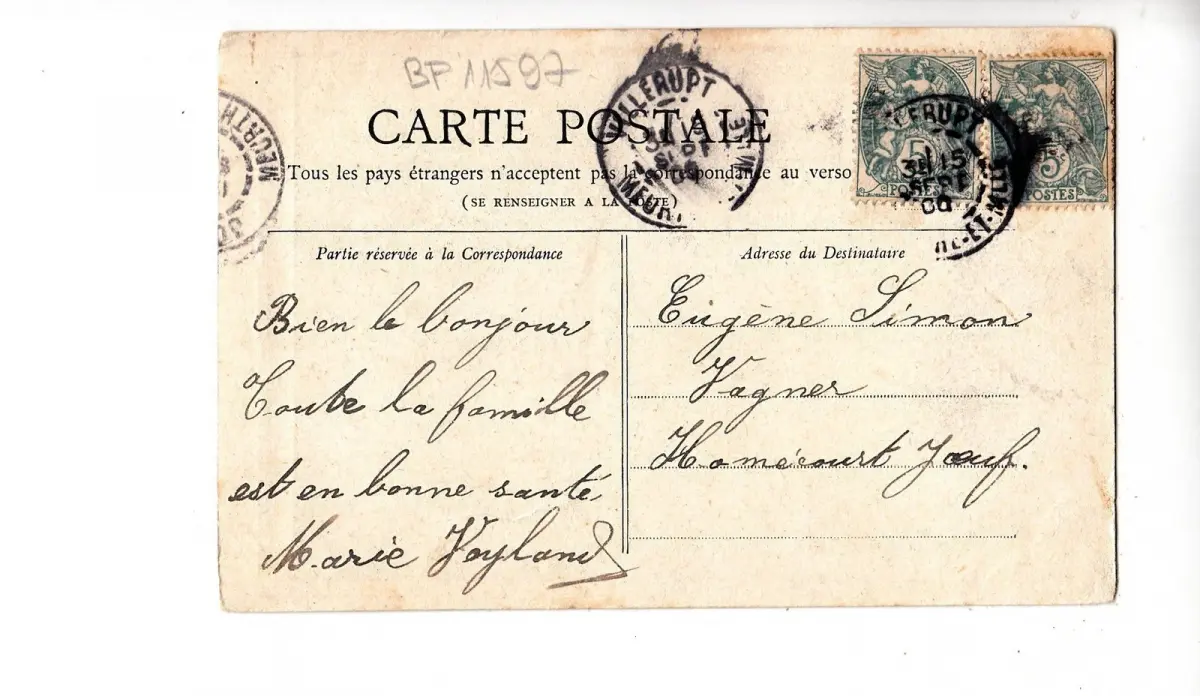 BP 11597
CARTE POSTALE
Tous les pays étrangers n'acceptent pas la correspondance au verso
(SE RENSEIGNER A LA POSTE)
VILLERUPT
MEUR
MEURTH
LERUPT
15
SEPT
5
POSTES
5
POSTES
Partie réservée à la Correspondance
Bien le bonjour
Toute la famille
est en bonne santé
Marie Voyland
Adresse du Destinataire
Eugène Simon
Vagner
Homécourt Jœuf.